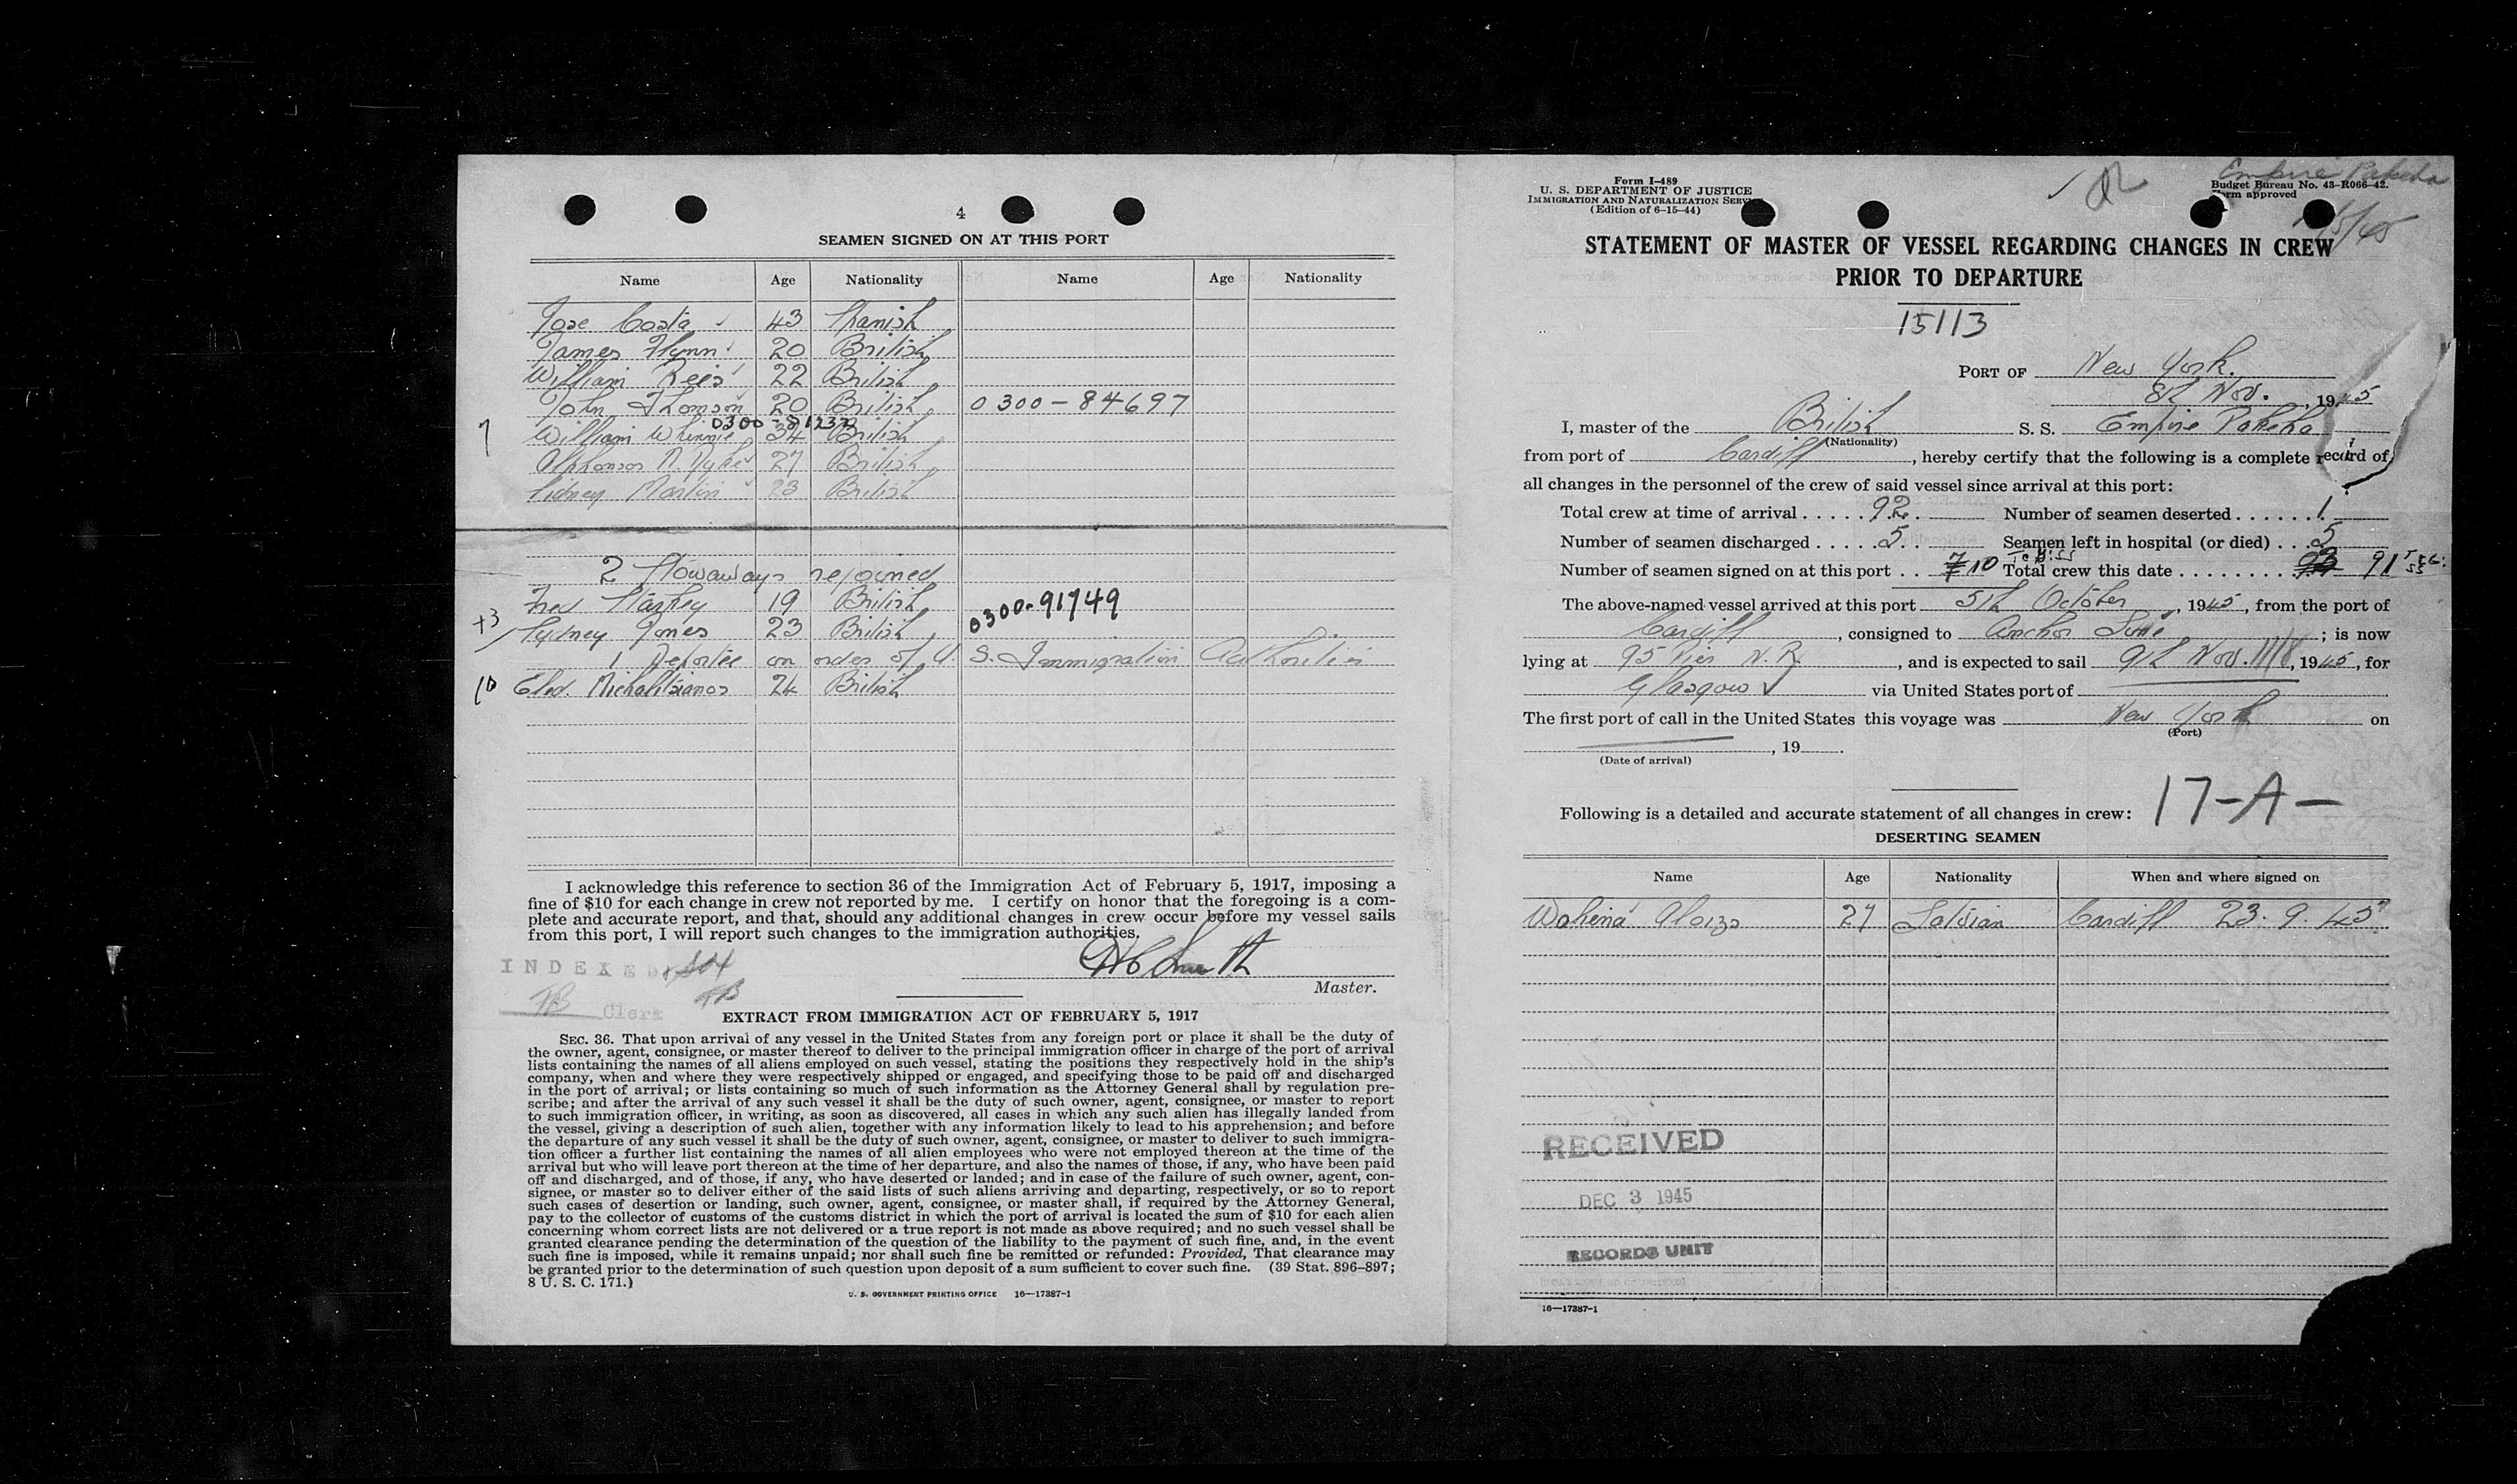 4
SEAMEN SIGNED ON AT THIS PORT
Name Age Nationality Name Age Nationality
Jose Costa 43 Spanish
James Flynn 20 British
William Rees 22 British
John Thomson 20 British 0300-84697
0300-81237
7 William Whinnie 34 British
Alphonsos N. Dyke 27 British
Sidney Martin 23 British
2 Stowaways rejoined
Fred Starkey 19 British 0300-91749
+3 Sydney Jones 23 British
1 Deportee on order of U.S. Immigration Authorities
10 Eled. Michalitsianos 24 British
I acknowledge this reference to section 36 of the Immigration Act of February 5, 1917, imposing a
fine of $10 for each change in crew not reported by me. I certify on honor that the foregoing is a com-
plete and accurate report, and that, should any additional changes in crew occur before my vessel sails
from this port, I will report such changes to the immigration authorities.
INDEXED
Master.
TB Clerk TB
EXTRACT FROM IMMIGRATION ACT OF FEBRUARY 5, 1917
SEC. 36. That upon arrival of any vessel in the United States from any foreign port or place it shall be the duty of
the owner, agent, consignee, or master thereof to deliver to the principal immigration officer in charge of the port of arrival
lists containing the names of all aliens employed on such vessel, stating the positions they respectively hold in the ship's
company, when and where they were respectively shipped or engaged, and specifying those to be paid off and discharged
in the port of arrival; or lists containing so much of such information as the Attorney General shall by regulation pre-
scribe; and after the arrival of any such vessel it shall be the duty of such owner, agent, consignee, or master to report
to such immigration officer, in writing, as soon as discovered, all cases in which any such alien has illegally landed from
the vessel, giving a description of such alien, together with any information likely to lead to his apprehension; and before
the departure of any such vessel it shall be the duty of such owner, agent, consignee, or master to deliver to such immigra-
tion officer a further list containing the names of all alien employees who were not employed thereon at the time of the
arrival but who will leave port thereon at the time of her departure, and also the names of those, if any, who have been paid
off and discharged, and of those, if any, who have deserted or landed; and in case of the failure of such owner, agent, con-
signee, or master so to deliver either of the said lists of such aliens arriving and departing, respectively, or so to report
such cases of desertion or landing, such owner, agent, consignee, or master shall, if required by the Attorney General,
pay to the collector of customs of the customs district in which the port of arrival is located the sum of $10 for each alien
concerning whom correct lists are not delivered or a true report is not made as above required; and no such vessel shall be
granted clearance pending the determination of the question of the liability to the payment of such fine, and, in the event
such fine is imposed, while it remains unpaid; nor shall such fine be remitted or refunded: Provided, That clearance may
be granted prior to the determination of such question upon deposit of a sum sufficient to cover such fine. (39 Stat. 896–897;
8 U. S. C. 171.)
U. S. GOVERNMENT PRINTING OFFICE 16—17387-1
Form I-489
U. S. DEPARTMENT OF JUSTICE
IMMIGRATION AND NATURALIZATION SERV
(Edition of 6-15-44)
Empire Pakeha
Budget Bureau No. 43-R066-42.
Form approved
STATEMENT OF MASTER OF VESSEL REGARDING CHANGES IN CREW
PRIOR TO DEPARTURE
15113
PORT OF New York.
8th Nov., 1945
I, master of the British S. S. Empire Pakeha
(Nationality)
from port of Cardiff, hereby certify that the following is a complete record of
all changes in the personnel of the crew of said vessel since arrival at this port:
Total crew at time of arrival ..... 92. Number of seamen deserted ...... 1
Number of seamen discharged ..... 5. Seamen left in hospital (or died) ... 5
Number of seamen signed on at this port .. 7 10 Total crew this date ........ 91
The above-named vessel arrived at this port 5th October, 1945, from the port of
Cardiff, consigned to Anchor Line; is now
lying at 95 Pier N.R., and is expected to sail 9th Nov. 11/8, 1945, for
Glasgow via United States port of
The first port of call in the United States this voyage was New York on
(Port)
, 19 .
(Date of arrival)
Following is a detailed and accurate statement of all changes in crew: 17-A-
DESERTING SEAMEN
Name Age Nationality When and where signed on
Wohina Aloizs 27 Latvian Cardiff 23.9.45
RECEIVED
DEC 3 1945
RECORDS UNIT
16—17387-1